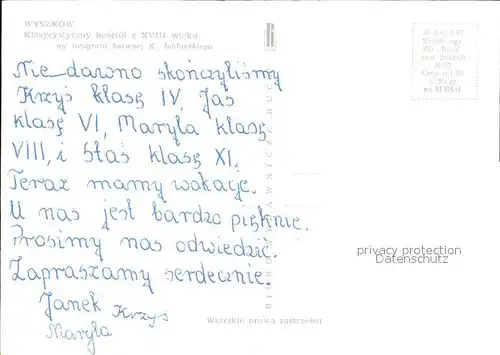 WYSZKÓW
Klasycystyczny kościół z XVIII wieku
wg fotografii barwnej K. Jabłońskiego
Nie dawno skończyliśmy
Krzyś klasę IV, Jaś
klasę VI, Maryla klasę
VIII, i Staś klasę XI.
Teraz mamy wakacje.
U nas jest bardzo pięknie.
Prosimy nas odwiedzić.
Zapraszamy serdecznie.
Janek Krzyś
Maryla
privacy protection
Datenschutz
Wszelkie prawa zastrzeżone